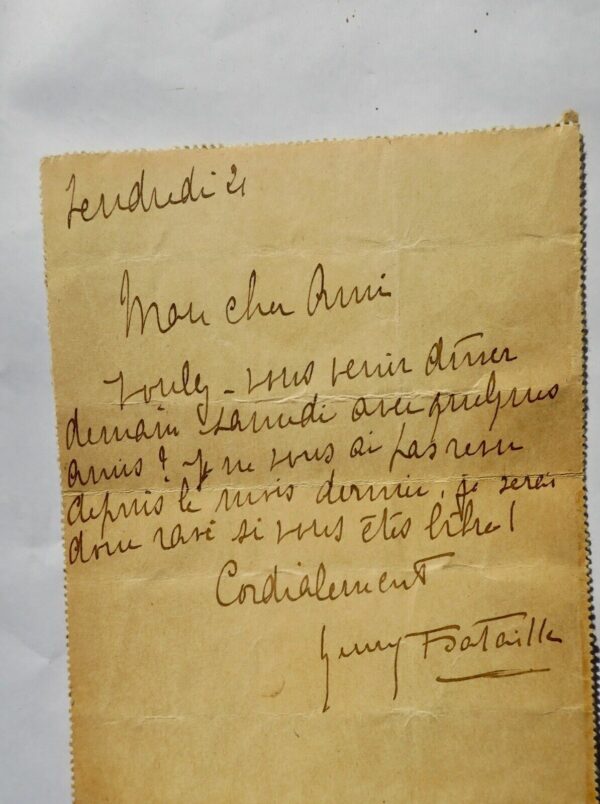 Vendredi 21
Mon cher Ami
voulez-vous venir dîner
demain samedi avec quelques
amis ? Je ne vous ai pas revu
depuis le mois dernier, je serai
donc ravi si vous êtes libre !
Cordialement
Henry Bataille